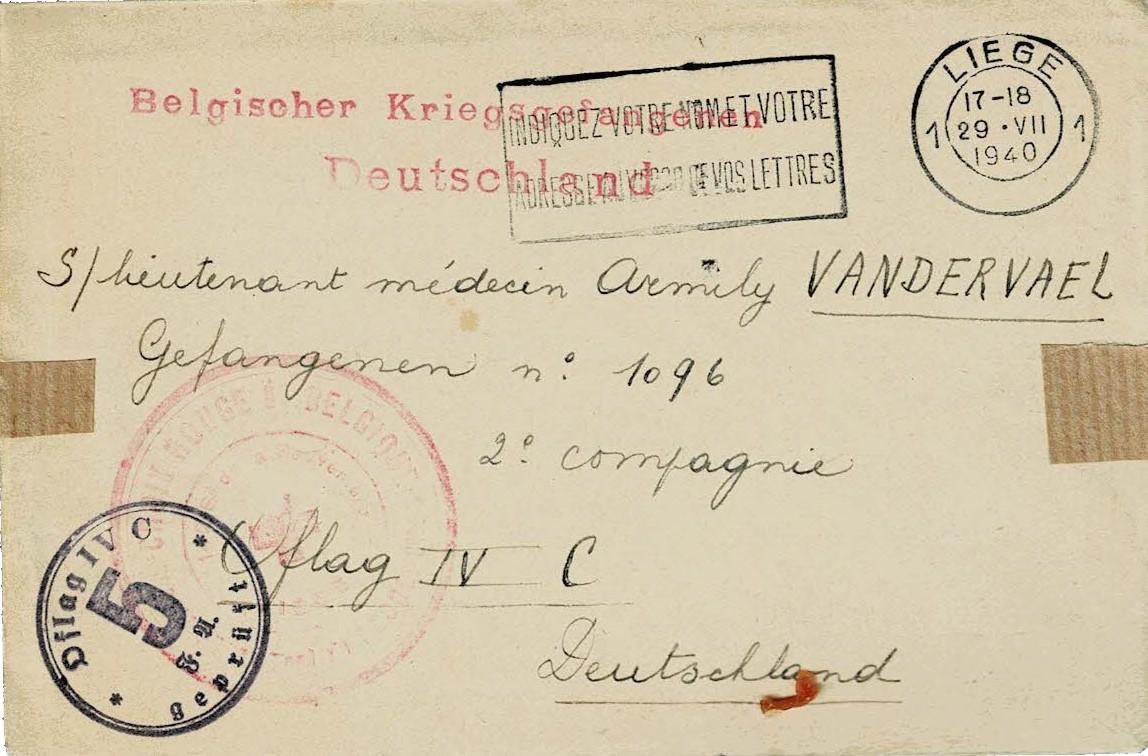 Belgischer Kriegsgefangenen
Deutschland
INDIQUEZ VOTRE NOM ET VOTRE
ADRESSE DE VOS LETTRES
LIEGE
17-18
1 29 • VII 1
1940
S/lieutenant médecin Armily VANDERVAEL
Gefangenen n° 1096
2e compagnie
Oflag IV C
Deutschland
ROUGE BELGIQUE
Oflag IV C
5
geprüft